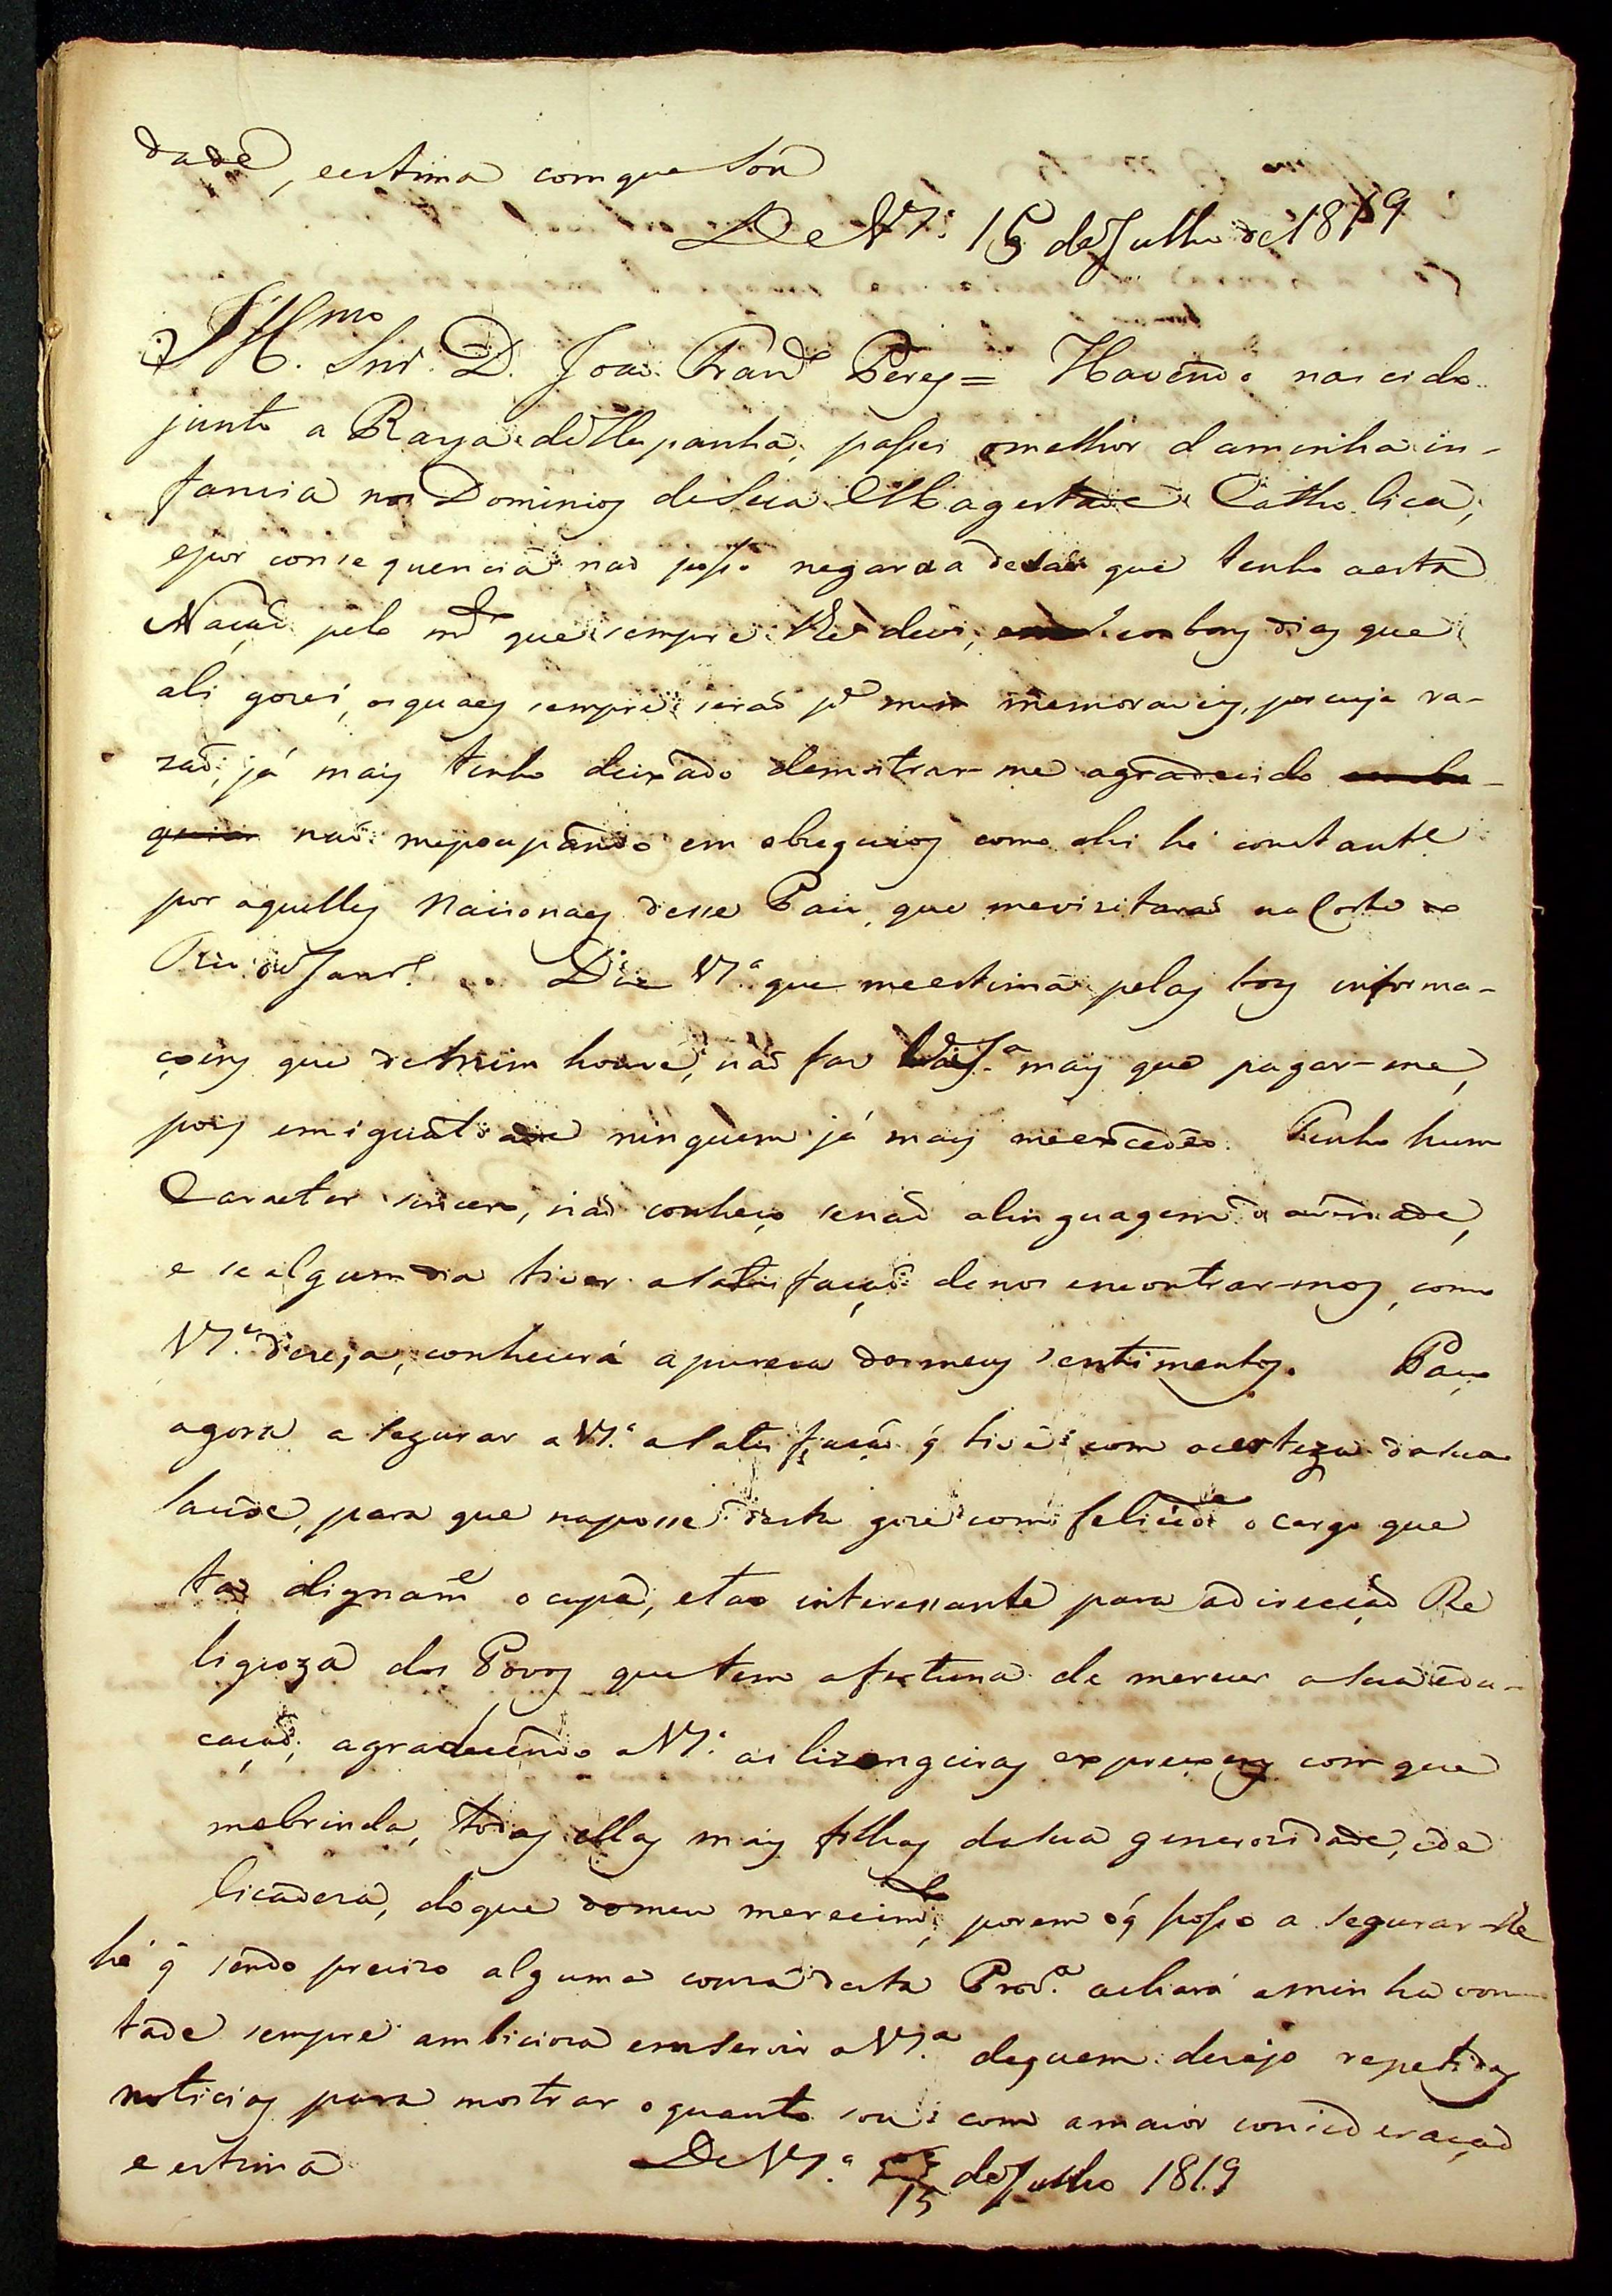 dade, e estima com que sou
De V.S.ª 15 de Julho de 1819
Ill.mo Snr. D. Joaõ Fran.co Perez = Havendo nascido
junto a Raya de Hespanha, passei o melhor da minha in-
fancia nos Dominios de Sua Magestade Catholica,
e por consequencia naõ posso negar a que tenho a esta
Naçaõ pelo m.to que sempre lhe devi, e os bons dias que
ali gozei, os quaes sempre seraõ p.ª mim memoraveis, por cuja ra-
zaõ já mais tenho deixado de mostrar-me agradecido
naõ me poupando em obsequios como ahi hé constante
por aquelles Nacionaes desse Paiz, que me visitaraõ na Corte do
Rio de Janr.º Diz V.S.ª que me estima pelas boas informa-
çoens que de mim houve, naõ faz V.S.ª mais que pagar-me,
pois em igualdade ninguem já mais me excedeo. Tenho hum
Caracter sincero, naõ conheço senaõ a linguagem da verdade,
e se algum dia tiver a satisfaçaõ de nos encontrar-mos, como
V.S.ª dezeja, conhecerá a pureza dos meus sentimentos. Paço
agora a segurar a V.S.ª a satisfaçaõ q̃ tive com a certeza da sua
saude, para que na posse desta goze com felicid.e o cargo que
taõ dignam.e ocupa, e tao interessante para a direcçaõ Re
ligioza dos Povos que tem a fortuna de merecer a sua edu-
caçaõ, agradecendo a V.S.ª as lizongeiras expreçoens com que
me brinda, todas ellas mais filhas da sua generozidade, e de
licadeza, do que do meu merecim.to, porem o q̃ posso a segurar-lhe
hé q̃ sendo precizo alguma couza desta Prov.ª achará a minha von
tade sempre ambicioza em servir a V.S.ª de quem dezejo repetidas
noticias para mostrar o quanto sou com a maior consideraçaõ
e estima De V.S.ª 15 de Julho 1819